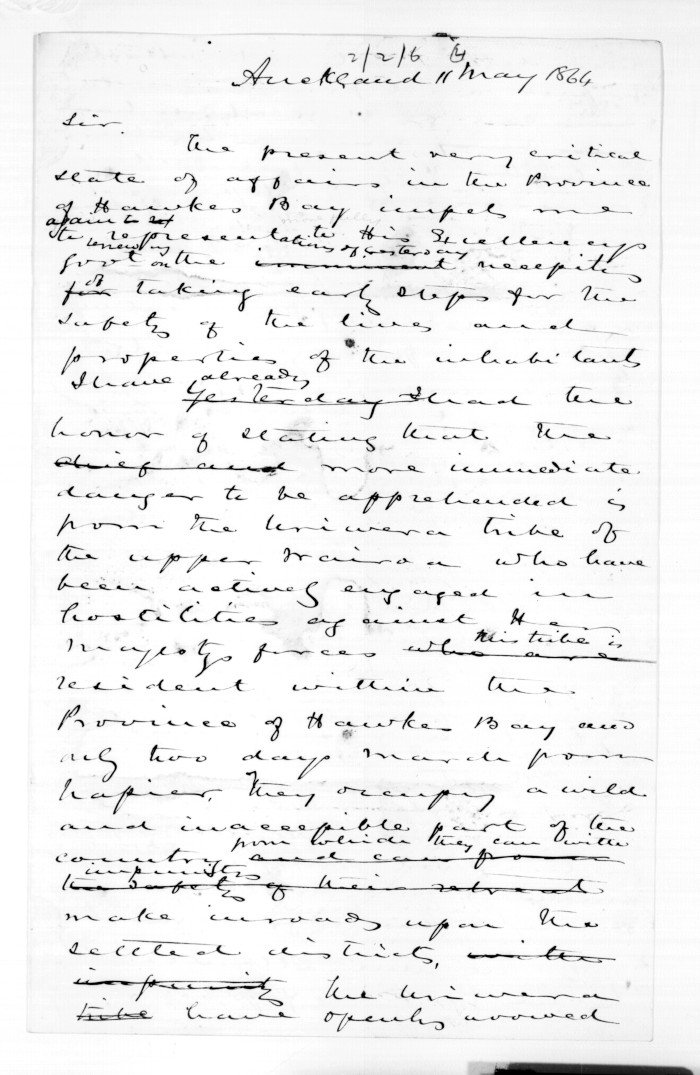 2/2/6
Auckland 11 May 1864
Sir.
The present very critical
state of affairs in the Province
of Hawkes Bay impels me
again to
to represent to His Excellency's
renewing ations of yesterday
govt on the imminent necessity
for of taking early steps for the
safety of the lives and
properties of the inhabitants
I have already
Yesterday I had the
honor of stating that the
chief and more immediate
danger to be apprehended is
from the Uriwera tribe of
the upper Wairoa who have
been actively engaged in
hostilities against Her
this tribe is
Majestys forces who are
resident within the
Province of Hawkes Bay and
only two days march from
Napier. They occupy a wild
and inaccessible part of the
from which they can with
country and can from
impunity
the safety of their retreat
make inroads upon the
settled districts, with
impunity the Uriwera
tribe have openly avowed